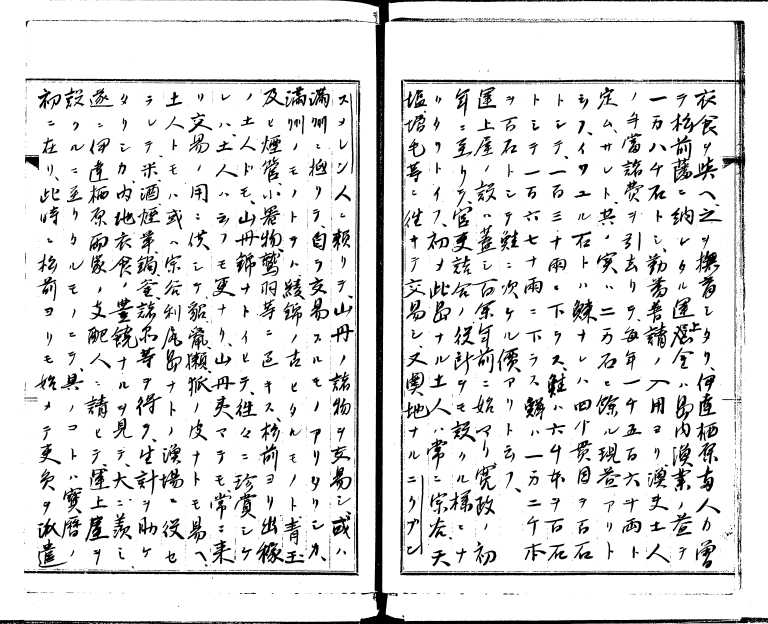 衣食ヲ與ヘ、之ヲ撫育シタリ、伊達栖原両人カ曽
テ松前藩ニ納レタル運上金ハ島内漁業ノ益テ
一万八千石トシ、勤番普請ノ入用ヨリ漁夫土人
ノ手當諸費ヲ引去リテ、毎年一千五百六十両ト
定ム、サレト其ノ実ハ二万石ニ餘ル現益アリト
云フ、イワユル石トハ鰊ナレハ四十貫目ヲ百石
トシテ、一百三十両ニ下ラス、鮭ハ六千本ヲ百石
トシテ一百六七十両ニ下ラス、鱒ハ一万二千本
ヲ百石トシテ鮭ニ次ケル價アリト云フ、
運上屋ノ設ハ蓋シ百余年前ニ始マリ寛政ノ初
年ニ至リテ、官吏詰合ノ役所ヲモ設クル様ニナ
リタリトイフ、初メ此島ナル土人ハ常ニ宗谷、天
塩、増毛等ニ往キテ交易シ、又奥地ナルニクブン
スメレン人ニ頼リテ、山丹ノ諸物ヲ交易シ或ハ
満洲ニ極リテ、自ラ交易スルモノアリタリシカ、
満洲ノモノトヲハ綾錦ノ古ヒタルモノト青玉
及ヒ煙管、小器物、鷲羽等ニ過キス、松前ヨリ出稼
ノ土人ドモ、山丹錦ナトイヒテ、往々ニ珍賞シケ
レハ、土人ハ云フモ更ナリ、山丹夷マテモ常ニ来
リ交易ノ用ニ供シケ貂、鼠、獺、狐ノ皮ナトモ易ヘ、
土人トモハ或ハ宗谷利尻島ナトノ漁場ニ役セ
ラレテ、米酒煙草鍋釜諸品等ヲ得ヲ、生計ヲ助ケ
タリシカ、内地衣食ノ豊饒ナルヲ見テ、大ニ羨ミ
遂ニ伊達栖原両家ノ支配人ニ請ヒテ、運上屋ヲ
設クルニ至リタルモノニテ、其ノコトハ寶暦ノ
初ニ在リ、此時ニ松前ヨリモ始メテ吏員ヲ派遣